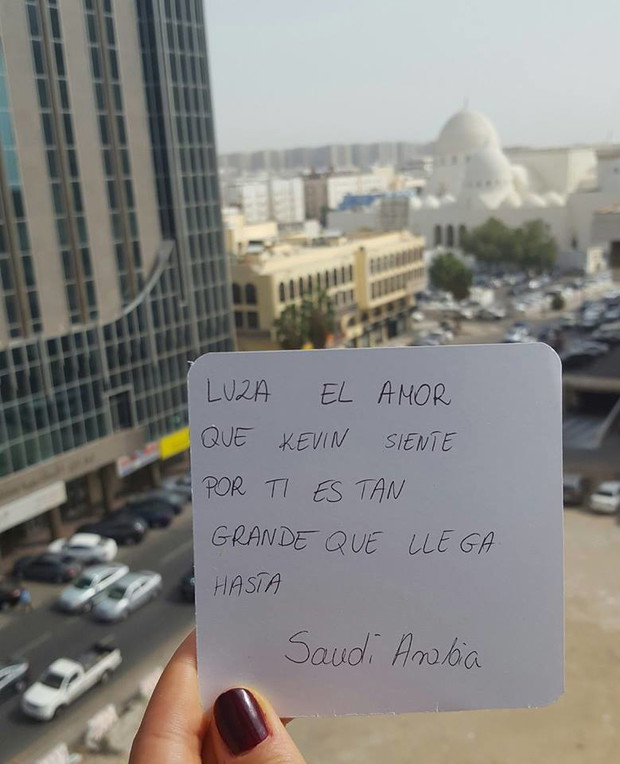 LUZA EL AMOR
QUE KEVIN SIENTE
POR TI ES TAN
GRANDE QUE LLEGA
HASTA
Saudi Arabia